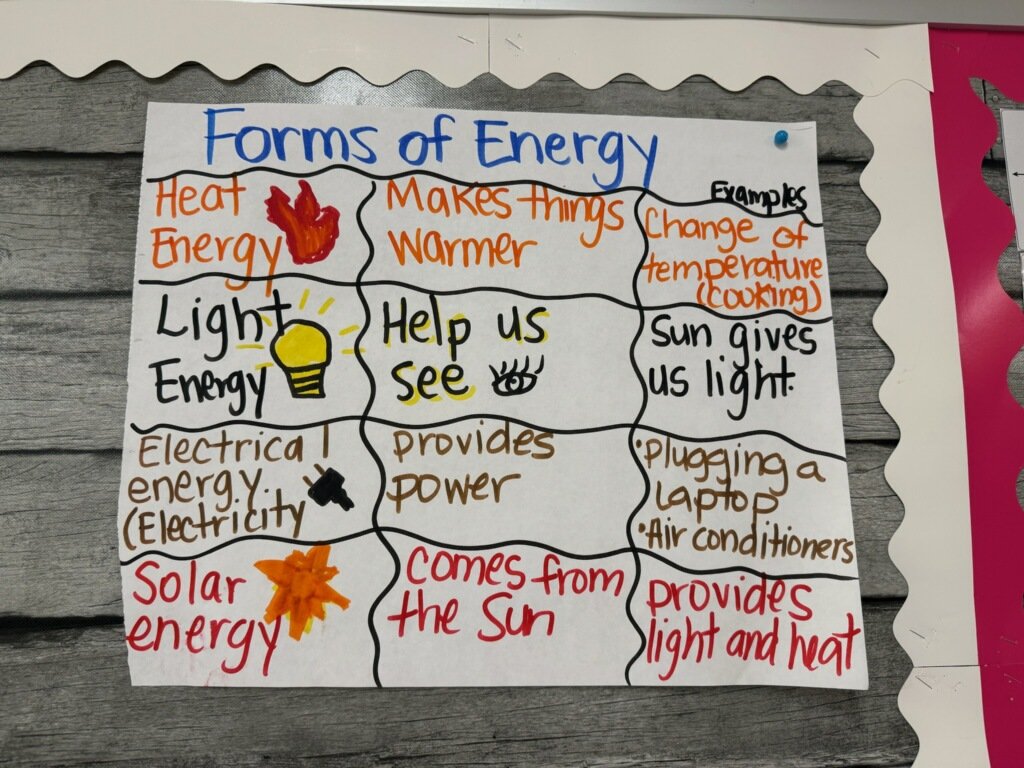 Forms of Energy
Examples
Heat
Energy
Makes things
Warmer
Change of
temperature
(cooking)
Light
Energy
Help us
see
Sun gives
us light.
Electrical
energy.
(Electricity
provides
power
•Plugging a
laptop
•Air conditioners
Solar
energy
comes from
the Sun
provides
light and heat